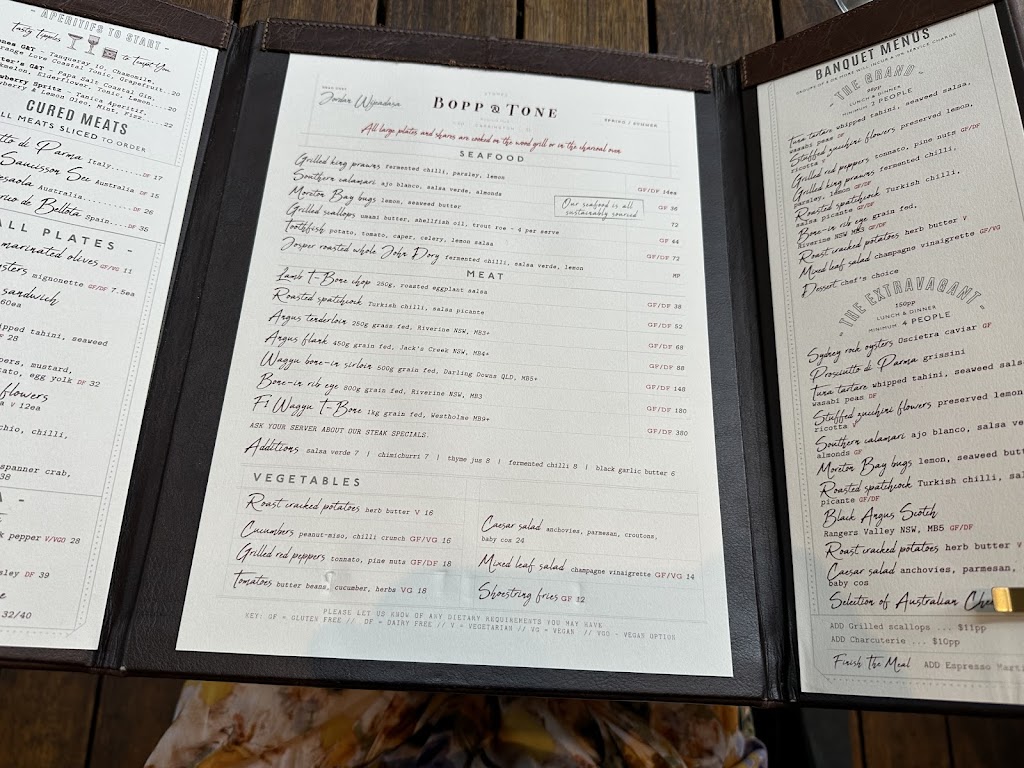 - APERITIFS TO START -
Tasty Tipples to Tempt You
G&T - Tanqueray 10, Chamomile,
Orange Love Coastal Tonic, Grapefruit..20
G&T - Papa Salt Coastal Gin,
Elderflower, Tonic, Lemon....20
Spritz - Tanica Aperitif,
& Lemon Oleo, Mint, Fizz....22
CURED MEATS
ALL MEATS SLICED TO ORDER
di Parma Italy.... DF 17
Saucisson Sec Australia DF 15
Australia.... DF 26
de Bellota Spain. DF 35
ALL PLATES -
marinated olives GF/VG 11
mignonette GF/DF 7.5ea
sandwich
60ea
whipped tahini, seaweed
28
mustard,
egg yolk DF 32
flowers
V 12ea
chilli,
spanner crab,
38
pepper V/VGO 28
DF 39
32/40
HEAD CHEF
STOKES
BOPP & TONE
CARRINGTON
SPRING / SUMMER
All large plates and shares are cooked on the wood grill or in the charcoal oven
SEAFOOD
Grilled king prawns fermented chilli, parsley, lemon GF/DF 14ea
Southern calamari ajo blanco, salsa verde, almonds GF 36
Our seafood is all
sustainably sourced
Moreton Bay bugs lemon, seaweed butter 72
Grilled scallops umami butter, shellfish oil, trout roe - 4 per serve GF 64
Toothfish potato, tomato, caper, celery, lemon salsa GF/DF 72
Josper roasted whole John Dory fermented chilli, salsa verde, lemon MP
MEAT
Lamb T-Bone chop 250g, roasted eggplant salsa GF/DF 38
Roasted spatchcock Turkish chilli, salsa picante GF/DF 52
Angus tenderloin 250g grass fed, Riverine NSW, MB3+ GF/DF 68
Angus flank 450g grain fed, Jack's Creek NSW, MB4+ GF/DF 88
Wagyu bone-in sirloin 500g grain fed, Darling Downs QLD, MB5+ GF/DF 148
Bone-in rib eye 800g grain fed, Riverine NSW, MB3 GF/DF 180
F1 Wagyu T-Bone 1kg grain fed, Westholme MB9+ GF/DF 380
ASK YOUR SERVER ABOUT OUR STEAK SPECIALS.
Additions salsa verde 7 | chimichurri 7 | thyme jus 8 | fermented chilli 8 | black garlic butter 6
VEGETABLES
Roast cracked potatoes herb butter V 16
Cucumbers peanut-miso, chilli crunch GF/VG 16
Grilled red peppers tonnato, pine nuts GF/DF 18
Tomatoes butter beans, cucumber, herbs VG 18
Caesar salad anchovies, parmesan, croutons,
baby cos 24
Mixed leaf salad champagne vinaigrette GF/VG 14
Shoestring fries GF 12
PLEASE LET US KNOW OF ANY DIETARY REQUIREMENTS YOU MAY HAVE
KEY: GF = GLUTEN FREE // DF = DAIRY FREE // V = VEGETARIAN // VG = VEGAN // VGO - VEGAN OPTION
BANQUET MENUS
GROUPS OF 8 OR MORE WILL INCUR A 10% SERVICE CHARGE
THE GRAND
98pp
LUNCH & DINNER
MINIMUM 2 PEOPLE
Tuna tartare whipped tahini, seaweed salsa,
wasabi peas DF
Stuffed zucchini flowers preserved lemon,
ricotta V
Grilled red peppers tonnato, pine nuts GF/DF
Grilled king prawns fermented chilli,
parsley, lemon GF/DF
Roasted spatchcock Turkish chilli,
salsa picante GF/DF
Bone-in rib eye grain fed,
Riverine NSW MB3 GF/DF
Roast cracked potatoes herb butter V
Mixed leaf salad champagne vinaigrette GF/VG
Dessert chef's choice
THE EXTRAVAGANT
150pp
LUNCH & DINNER
MINIMUM 4 PEOPLE
Sydney rock oysters Oscietra caviar GF
Prosciutto di Parma grissini
Tuna tartare whipped tahini, seaweed salsa,
wasabi peas DF
Stuffed zucchini flowers preserved lemon
ricotta V
Southern calamari ajo blanco, salsa
almonds GF
Moreton Bay bugs lemon, seaweed
Roasted spatchcock Turkish chilli,
picante GF/DF
Black Angus Scotch
Rangers Valley NSW, MB5 GF/DF
Roast cracked potatoes herb butter V
Caesar salad anchovies, parmesan,
baby cos
Selection of Australian
ADD Grilled scallops ... $11pp
ADD Charcuterie ... $10pp
Finish The Meal ADD Espresso